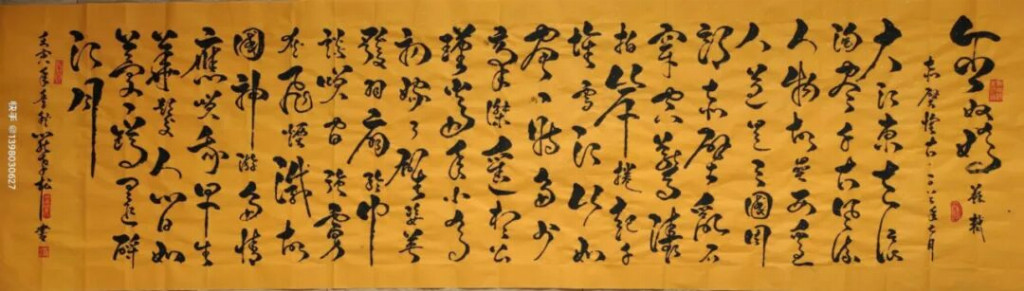 念奴娇 苏轼
赤壁怀古
大江东去浪
淘尽千古风流
人物故垒西边
人道是三國周
郎赤壁乱石
穿空惊涛
拍岸捲起千
堆雪江山如
画一时多少
豪杰遥想公
瑾当年小乔
初嫁了雄姿英
發羽扇纶巾
谈笑间强虏
灰飛煙滅故
國神游多情
應笑我早生
華髮人间如
梦一尊还酹
江月
壬寅年 松 書
快手 @1398030627